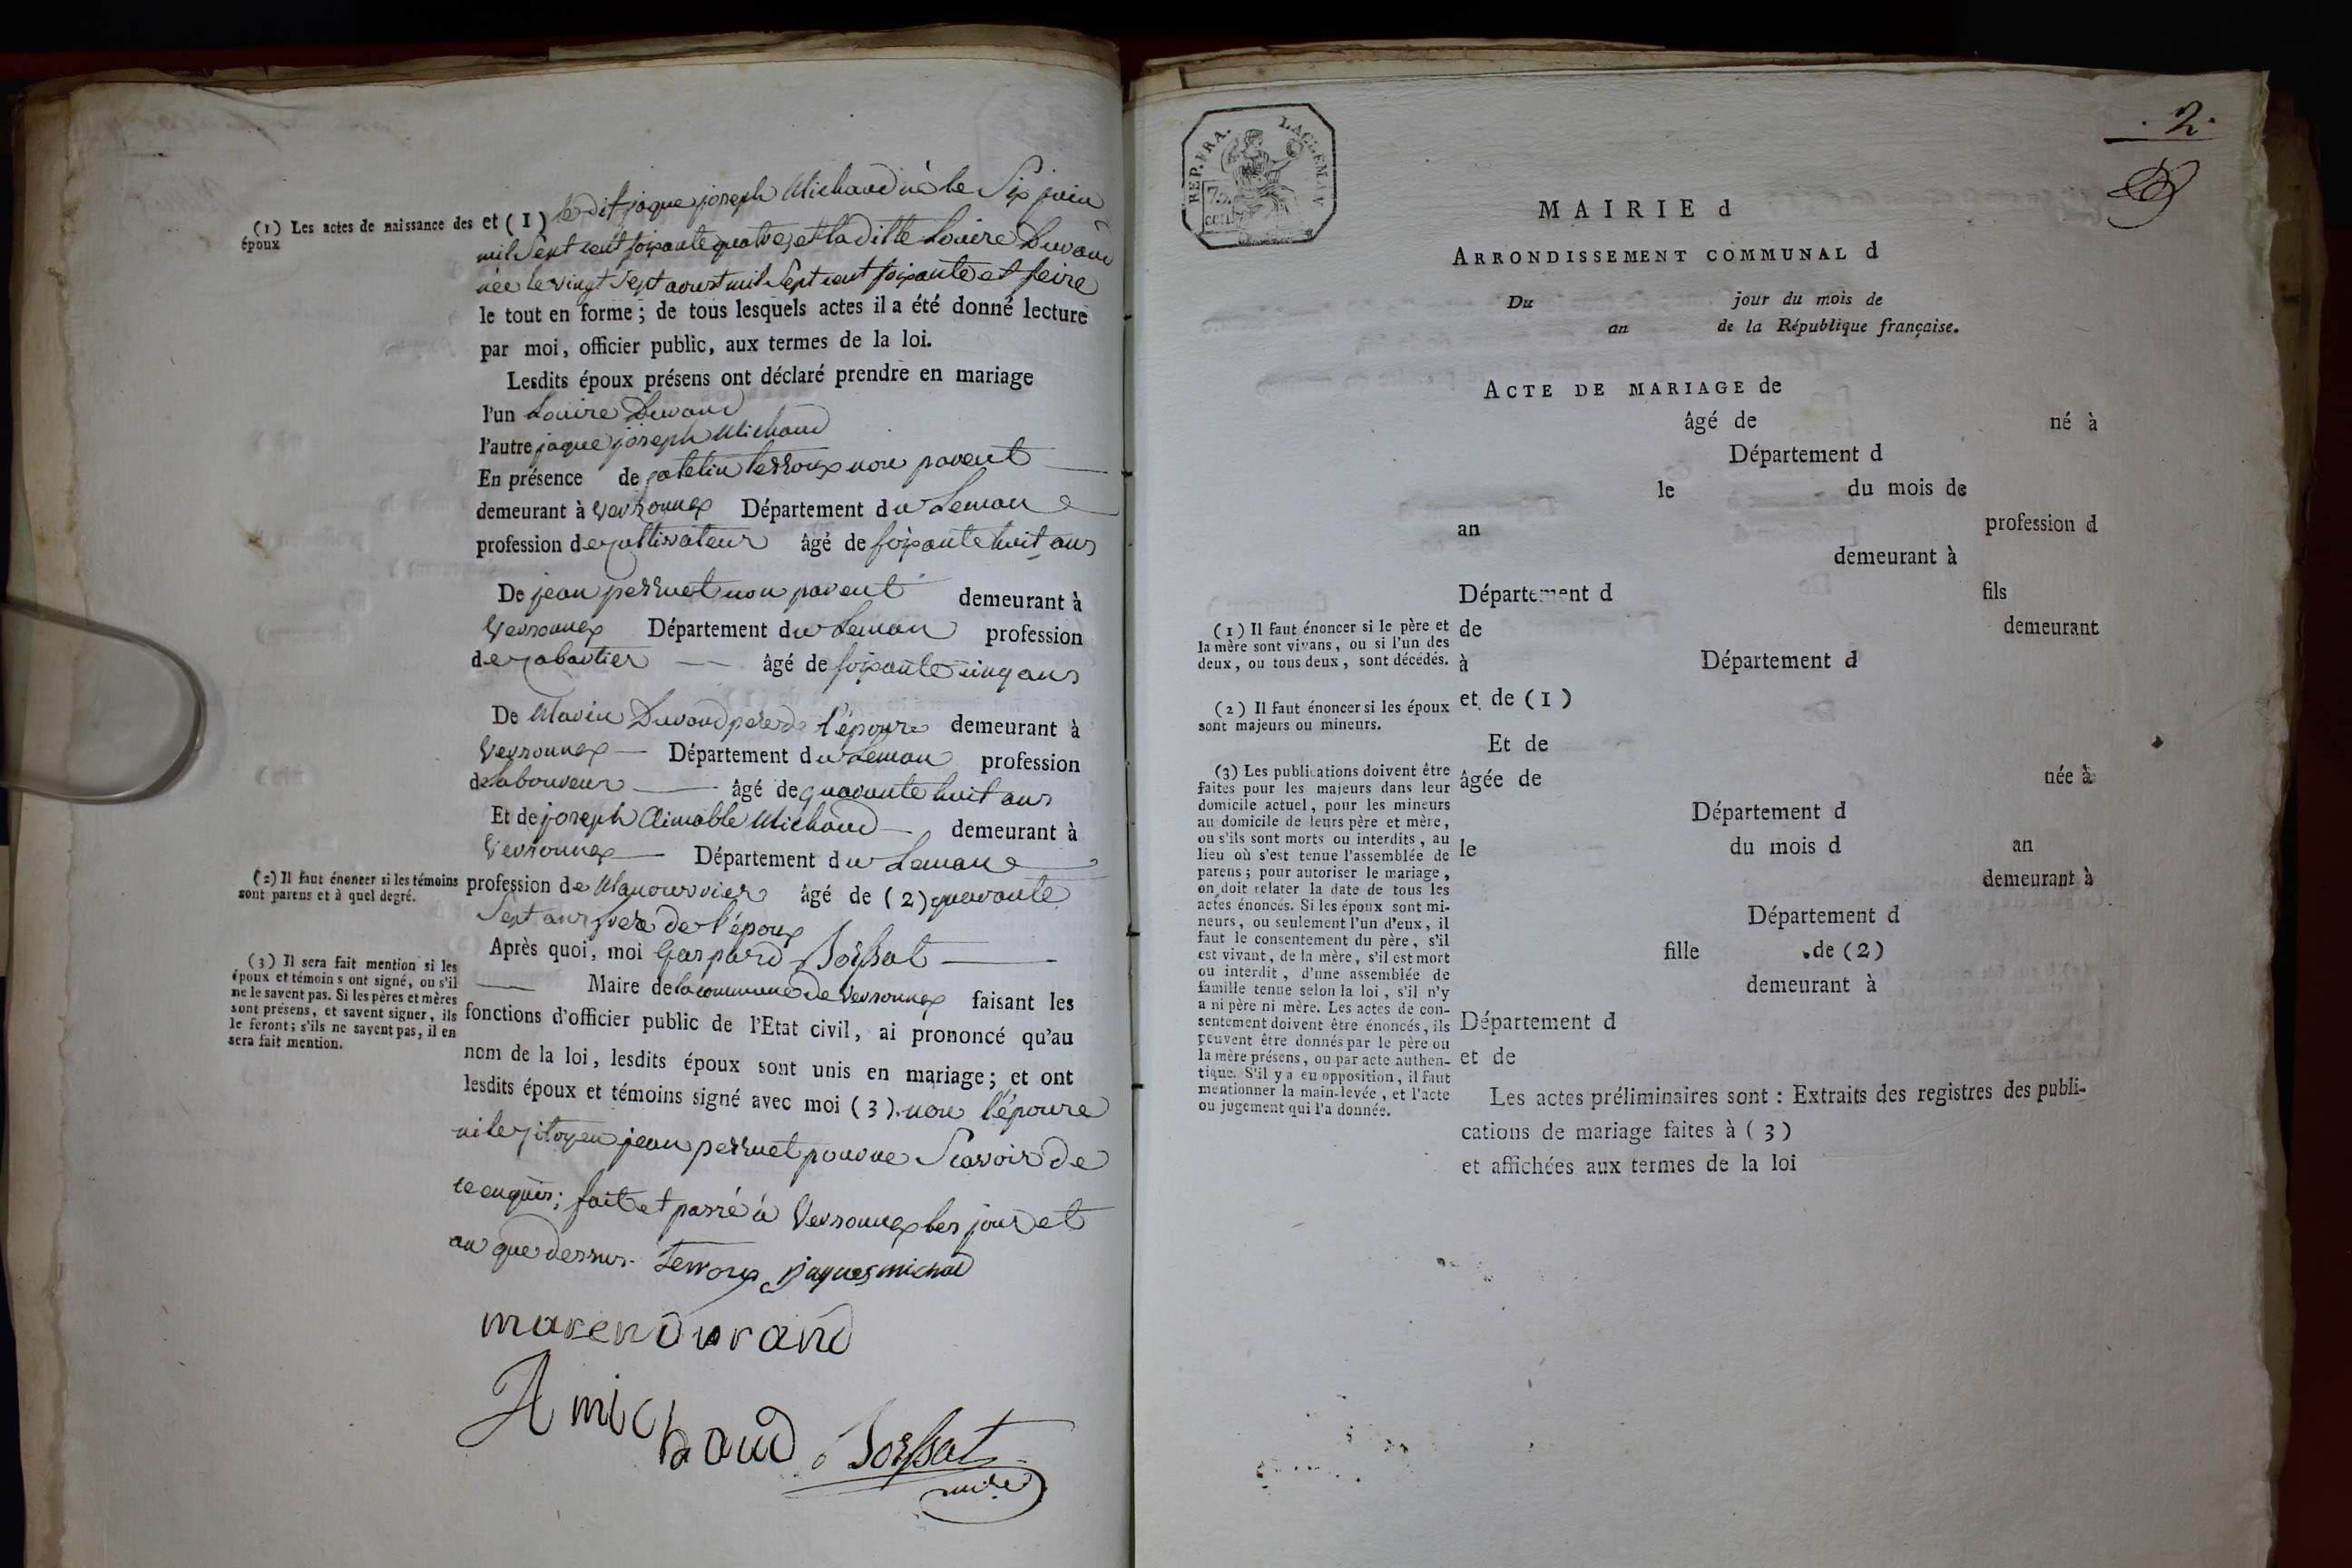 (1) Les actes de naissance des
époux
et (1) le dit jaque joseph Michaud né le Six juin
mil Sept cent soixante quatre, et la ditte Louise Durand
née le vingt Sept aoust mil Sept cent soixante et seize
le tout en forme; de tous lesquels actes il a été donné lecture
par moi, officier public, aux termes de la loi.
Lesdits époux présens ont déclaré prendre en mariage
l'un Louise Durand
l'autre jaque joseph Michaud
En présence de terroux non parent
demeurant à Versonnex Département du Leman
profession de cultivateur âgé de soixante huit ans
De jean perruet non parent demeurant à
Versonnex Département du Leman profession
de cabartier âgé de soixante cinq ans
De Marin Durand pere de l'épouse demeurant à
Versonnex Département du Leman profession
de laboureur âgé de quarante huit ans
Et de joseph Aimable Michaud demeurant à
Versonnex Département du Leman
(2) Il faut énoncer si les témoins
sont parens et à quel degré.
profession de Manouvrier âgé de (2) quarante
Sept ans frere de l'époux
Après quoi, moi Gaspard
Maire de la commune de Versonnex faisant les
(3) Il sera fait mention si les
époux et témoins ont signé, ou s'il
ne le savent pas. Si les pères et mères
sont présens, et savent signer, ils
le feront; s'ils ne savent pas, il en
sera fait mention.
fonctions d'officier public de l'Etat civil, ai prononcé qu'au
nom de la loi, lesdits époux sont unis en mariage; et ont
lesdits époux et témoins signé avec moi (3). non l'épouse
ni le citoyen jean perruet pour ne Scavoir de
ce enquis; fait et passé à Versonnex les jour et
an que dessus. terroux jaques michad
maren durand
A michaud
maire
.2.
REP. FRA.
75
cent
MAIRIE d
ARRONDISSEMENT COMMUNAL d
Du jour du mois de
an de la République française.
ACTE DE MARIAGE de
âgé de né à
Département d
le du mois de
an profession d
demeurant à
Département d fils
(1) Il faut énoncer si le père et
la mère sont vivans, ou si l'un des
deux, ou tous deux, sont décédés.
de demeurant
à Département d
(2) Il faut énoncer si les époux
sont majeurs ou mineurs.
et de (1)
Et de
(3) Les publications doivent être
faites pour les majeurs dans leur
domicile actuel, pour les mineurs
au domicile de leurs père et mère,
ou s'ils sont morts ou interdits, au
lieu où s'est tenue l'assemblée de
parens; pour autoriser le mariage,
on doit relater la date de tous les
actes énoncés. Si les époux sont mi-
neurs, ou seulement l'un d'eux, il
faut le consentement du père, s'il
est vivant, de la mère, s'il est mort
ou interdit, d'une assemblée de
famille tenue selon la loi, s'il n'y
a ni père ni mère. Les actes de con-
sentement doivent être énoncés, ils
peuvent être donnés par le père ou
la mère présens, ou par acte authen-
tique. S'il y a eu opposition, il faut
mentionner la main-levée, et l'acte
ou jugement qui l'a donnée.
âgée de née à
Département d
le du mois d an
demeurant à
Département d
fille de (2)
demeurant à
Département d
et de
Les actes préliminaires sont : Extraits des registres des publi-
cations de mariage faites à (3)
et affichées aux termes de la loi